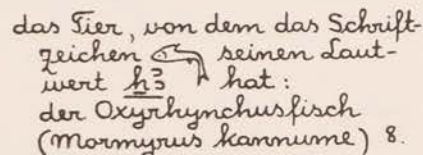 das Tier, von dem das Schrift-
zeichen 𓆞 seinen Laut-
wert ẖꜣ hat:
der Oxyrhynchusfisch
(Mormyrus kannume) 8.